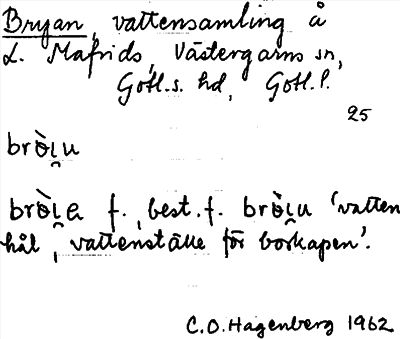 Bryan, vattensamling å
L. Mafrids, Västergarns sn,
Gotl.s. hd, Gotl. l.
25
brò̵i̯u
brò̵i̯a f., best. f. brò̵i̯u 'vatten
hål, vattenställe för boskapen'.
C.O. Hagenberg 1962